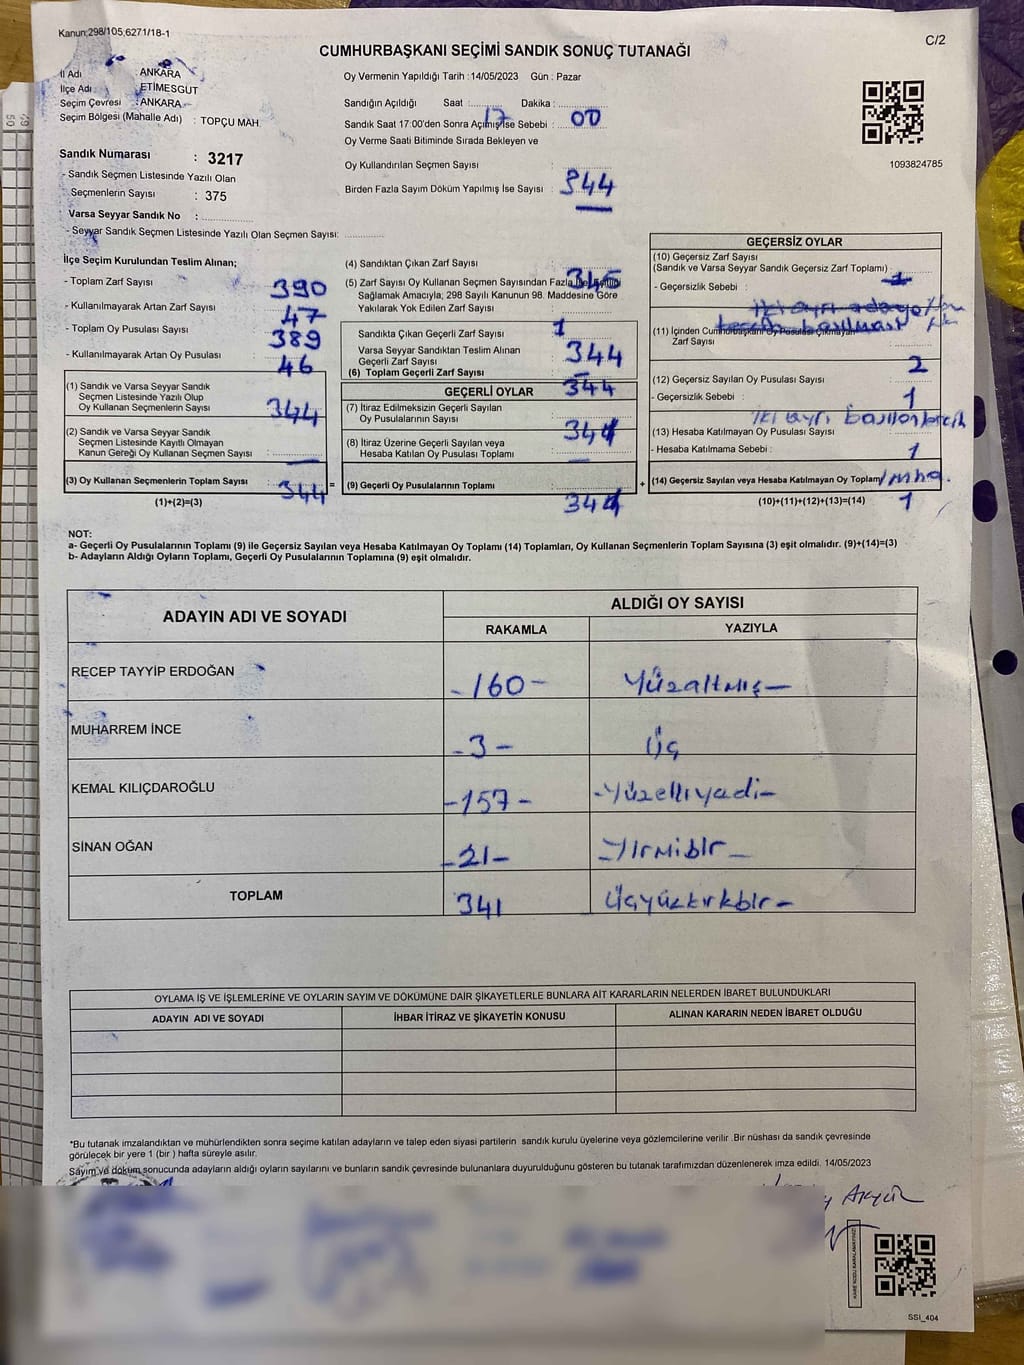 Kanun;298/105,6271/18-1
C/2
CUMHURBAŞKANI SEÇİMİ SANDIK SONUÇ TUTANAĞI
İl Adı : ANKARA
İlçe Adı : ETİMESGUT
Seçim Çevresi : ANKARA
Seçim Bölgesi (Mahalle Adı) : TOPÇU MAH.
Sandık Numarası : 3217
- Sandık Seçmen Listesinde Yazılı Olan
Seçmenlerin Sayısı : 375
Varsa Seyyar Sandık No :
- Seyyar Sandık Seçmen Listesinde Yazılı Olan Seçmen Sayısı:
Oy Vermenin Yapıldığı Tarih :14/05/2023 Gün : Pazar
Sandığın Açıldığı Saat : 17 Dakika : 00
Sandık Saat 17:00'den Sonra Açılmış İse Sebebi :
Oy Verme Saati Bitiminde Sırada Bekleyen ve
Oy Kullandırılan Seçmen Sayısı :
Birden Fazla Sayım Döküm Yapılmış İse Sayısı : 344
1093824785
İlçe Seçim Kurulundan Teslim Alınan;
- Toplam Zarf Sayısı : 390
- Kullanılmayarak Artan Zarf Sayısı : 47
- Toplam Oy Pusulası Sayısı : 389
- Kullanılmayarak Artan Oy Pusulası : 46
(1) Sandık ve Varsa Seyyar Sandık
Seçmen Listesinde Yazılı Olup
Oy Kullanan Seçmenlerin Sayısı : 344
(2) Sandık ve Varsa Seyyar Sandık
Seçmen Listesinde Kayıtlı Olmayan
Kanun Gereği Oy Kullanan Seçmen Sayısı : —
(3) Oy Kullanan Seçmenlerin Toplam Sayısı : 344 =
(1)+(2)=(3)
(4) Sandıktan Çıkan Zarf Sayısı : 345
(5) Zarf Sayısı Oy Kullanan Seçmen Sayısından Fazla İse Eşitliği
Sağlamak Amacıyla; 298 Sayılı Kanunun 98. Maddesine Göre
Yakılarak Yok Edilen Zarf Sayısı : 1
Sandıkta Çıkan Geçerli Zarf Sayısı : 344
Varsa Seyyar Sandıktan Teslim Alınan
Geçerli Zarf Sayısı : —
(6) Toplam Geçerli Zarf Sayısı : 344
GEÇERLİ OYLAR
(7) İtiraz Edilmeksizin Geçerli Sayılan
Oy Pusulalarının Sayısı : 341
(8) İtiraz Üzerine Geçerli Sayılan veya
Hesaba Katılan Oy Pusulası Toplamı : —
(9) Geçerli Oy Pusulalarının Toplamı : 341 +
GEÇERSİZ OYLAR
(10) Geçersiz Zarf Sayısı
(Sandık ve Varsa Seyyar Sandık Geçersiz Zarf Toplamı)
- Geçersizlik Sebebi :
(11) İçinden Cumhurbaşkanı Oy Pusulası Çıkmayan
Zarf Sayısı : 2
(12) Geçersiz Sayılan Oy Pusulası Sayısı : 1
- Geçersizlik Sebebi : iki ayrı
(13) Hesaba Katılmayan Oy Pusulası Sayısı :
- Hesaba Katılmama Sebebi : 1
(14) Geçersiz Sayılan veya Hesaba Katılmayan Oy Toplamı
(10)+(11)+(12)+(13)=(14) 1
NOT:
a- Geçerli Oy Pusulalarının Toplamı (9) ile Geçersiz Sayılan veya Hesaba Katılmayan Oy Toplamı (14) Toplamları, Oy Kullanan Seçmenlerin Toplam Sayısına (3) eşit olmalıdır. (9)+(14)=(3)
b- Adayların Aldığı Oyların Toplamı, Geçerli Oy Pusulalarının Toplamına (9) eşit olmalıdır.
ADAYIN ADI VE SOYADI
ALDIĞI OY SAYISI
RAKAMLA YAZIYLA
RECEP TAYYİP ERDOĞAN - 160 - Yüzaltmış -
MUHARREM İNCE - 3 - Üç
KEMAL KILIÇDAROĞLU - 157 - - Yüzelliyedi -
SİNAN OĞAN - 21 - - Yirmibir -
TOPLAM 341 Üçyüzkırkbir -
OYLAMA İŞ VE İŞLEMLERİNE VE OYLARIN SAYIM VE DÖKÜMÜNE DAİR ŞİKAYETLERLE BUNLARA AİT KARARLARIN NELERDEN İBARET BULUNDUKLARI
ADAYIN ADI VE SOYADI İHBAR İTİRAZ VE ŞİKAYETİN KONUSU ALINAN KARARIN NEDEN İBARET OLDUĞU
*Bu tutanak imzalandıktan ve mühürlendikten sonra seçime katılan adayların ve talep eden siyasi partilerin sandık kurulu üyelerine veya gözlemcilerine verilir .Bir nüshası da sandık çevresinde
görülecek bir yere 1 (bir ) hafta süreyle asılır.
Sayım ve döküm sonucunda adayların aldığı oyların sayılarını ve bunların sandık çevresinde bulunanlara duyurulduğunu gösteren bu tutanak tarafımızdan düzenlenerek imza edildi. 14/05/2023
SSI_404